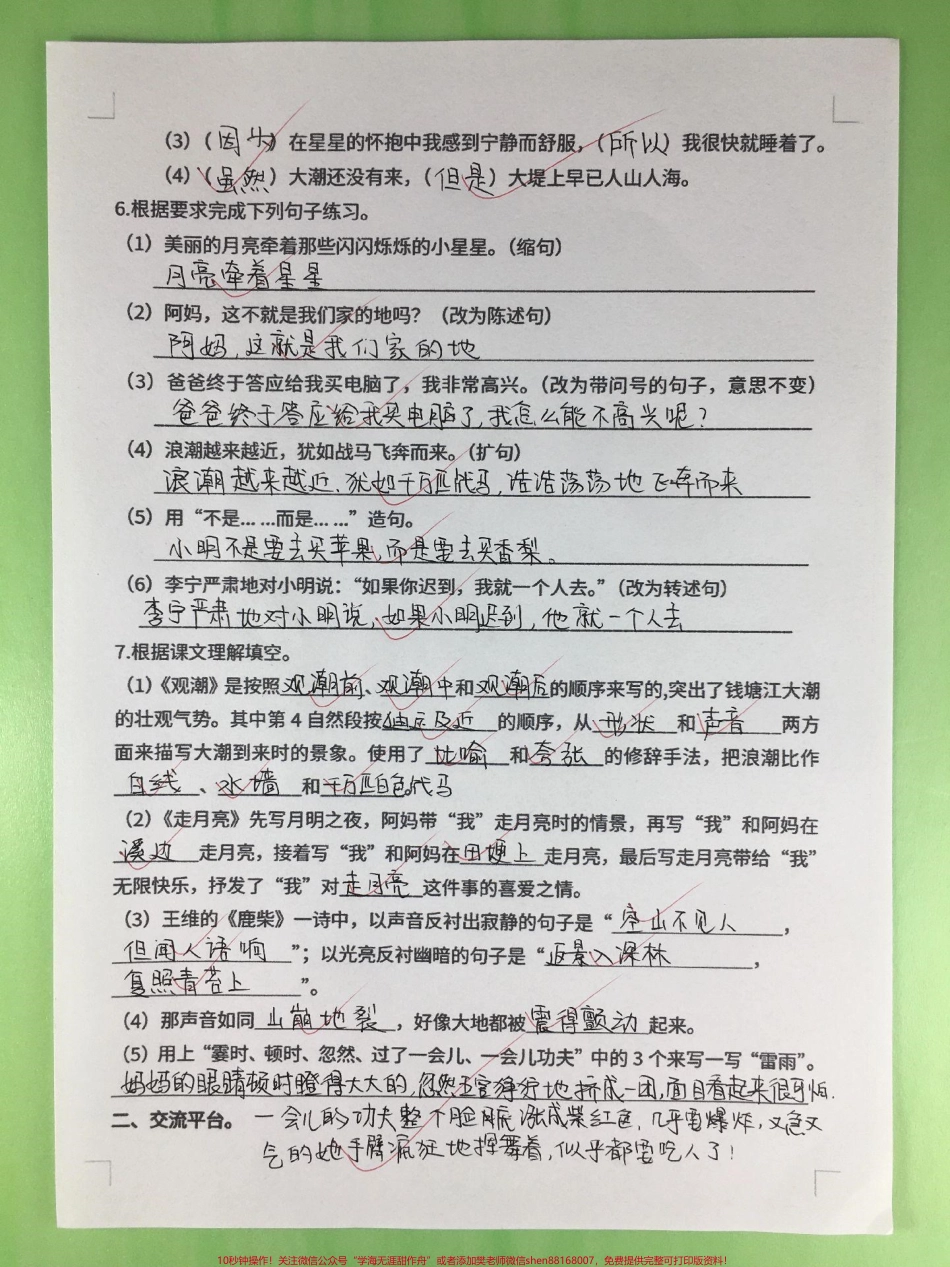 （3）（因为）在星星的怀抱中我感到宁静而舒服，（所以）我很快就睡着了。
（4）（虽然）大潮还没有来，（但是）大堤上早已人山人海。
6.根据要求完成下列句子练习。
（1）美丽的月亮牵着那些闪闪烁烁的小星星。（缩句）
月亮牵着星星
（2）阿妈，这不就是我们家的地吗？（改为陈述句）
阿妈，这就是我们家的地
（3）爸爸终于答应给我买电脑了，我非常高兴。（改为带问号的句子，意思不变）
爸爸终于答应给我买电脑了，我怎么能不高兴呢？
（4）浪潮越来越近，犹如战马飞奔而来。（扩句）
浪潮越来越近，犹如千万匹战马，浩浩荡荡地飞奔而来
（5）用“不是... ...而是... ...”造句。
小明不是要去买苹果，而是要去买香梨。
（6）李宁严肃地对小明说：“如果你迟到，我就一个人去。”（改为转述句）
李宁严肃地对小明说，如果小明迟到，他就一个人去
7.根据课文理解填空。
（1）《观潮》是按照观潮前、观潮中和观潮后的顺序来写的,突出了钱塘江大潮
的壮观气势。其中第 4 自然段按由远及近的顺序，从形状和声音两方
面来描写大潮到来时的景象。使用了比喻和夸张的修辞手法，把浪潮比作
白线、水墙和千万匹白色战马
（2）《走月亮》先写月明之夜，阿妈带“我”走月亮时的情景，再写“我”和阿妈在
溪边走月亮，接着写“我”和阿妈在田埂上走月亮，最后写走月亮带给“我”
无限快乐，抒发了“我”对走月亮这件事的喜爱之情。
（3）王维的《鹿柴》一诗中，以声音反衬出寂静的句子是“空山不见人，
但闻人语响”；以光亮反衬幽暗的句子是“返景入深林，
复照青苔上”。
（4）那声音如同山崩地裂，好像大地都被震得颤动起来。
（5）用上“霎时、顿时、忽然、过了一会儿、一会儿功夫”中的 3 个来写一写“雷雨”。
妈妈的眼睛顿时瞪得大大的，忽然五官狰狞地挤成一团，面目看起来很可怕.
二、交流平台。 一会儿的功夫整个脸胀涨成紫红色，几乎要爆炸，又急又
气的她手臂疯狂地挥舞着，似乎都要吃人了！
10秒钟操作！关注微信公众号“学海无涯甜作舟”或者添加樊老师微信shen88168007，免费提供完整可打印版资料！